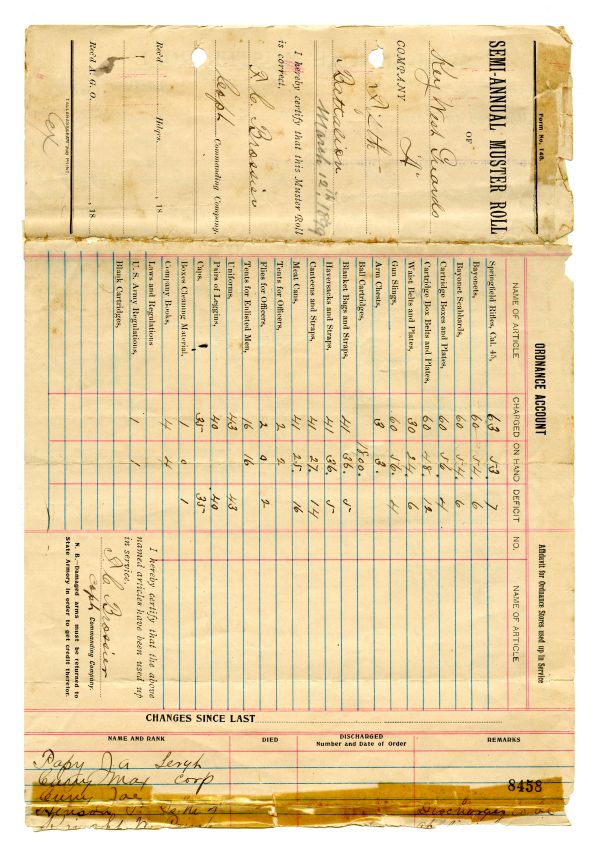 Form No. 148.
SEMI-ANNUAL MUSTER ROLL
OF
Key West Guards
COMPANY "A"
Battalion
March 12th 1899
I hereby certify that this Muster Roll
is correct,
Commanding Company.
Rec'd Hdqrs. 18
Rec'd A. G. O. 18
TALLAHASSEEAN JOB PRINT.
ORDNANCE ACCOUNT
Affidavit for Ordnance Stores used up in Service
NAME OF ARTICLE CHARGED ON HAND DEFICIT NO. NAME OF ARTICLE
Springfield Rifles, Cal. 45, 63 53 7
Bayonets, 60 54 6
Bayonet Scabbards, 60 54 6
Cartridge Boxes and Plates, 60 56 4
Cartridge Box Belts and Plates, 60 48 12
Waist Belts and Plates, 30 24 6
Gun Slings, 60 56 4
Arm Chests, 3 3
Ball Cartridges, 1800
Blanket Bags and Straps, 41 36 5
Haversacks and Straps, 41 36 5
Canteens and Straps, 41 27 14
Meat Cans, 41 25 16
Tents for Officers, 2 2
Flies for Officers, 2 0 2
Tents for Enlisted Men, 16 16
Uniforms, 43 43
Pairs of Leggins, 40 40
Caps, 35 35
Boxes Cleaning Material, 1 0 1
Company Books, 4 4
Laws and Regulations
U. S. Army Regulations, 1 1
Blank Cartridges,
I hereby certify that the above
named articles have been used up
in service.
Brossier
Commanding Company.
N. B.—Damaged arms must be returned to
State Armory in order to get credit therefor.
CHANGES SINCE LAST
NAME AND RANK DIED DISCHARGED REMARKS
Number and Date of Order
Papy J. A Sergt
Curry Max Corp
8458
Curry Joe